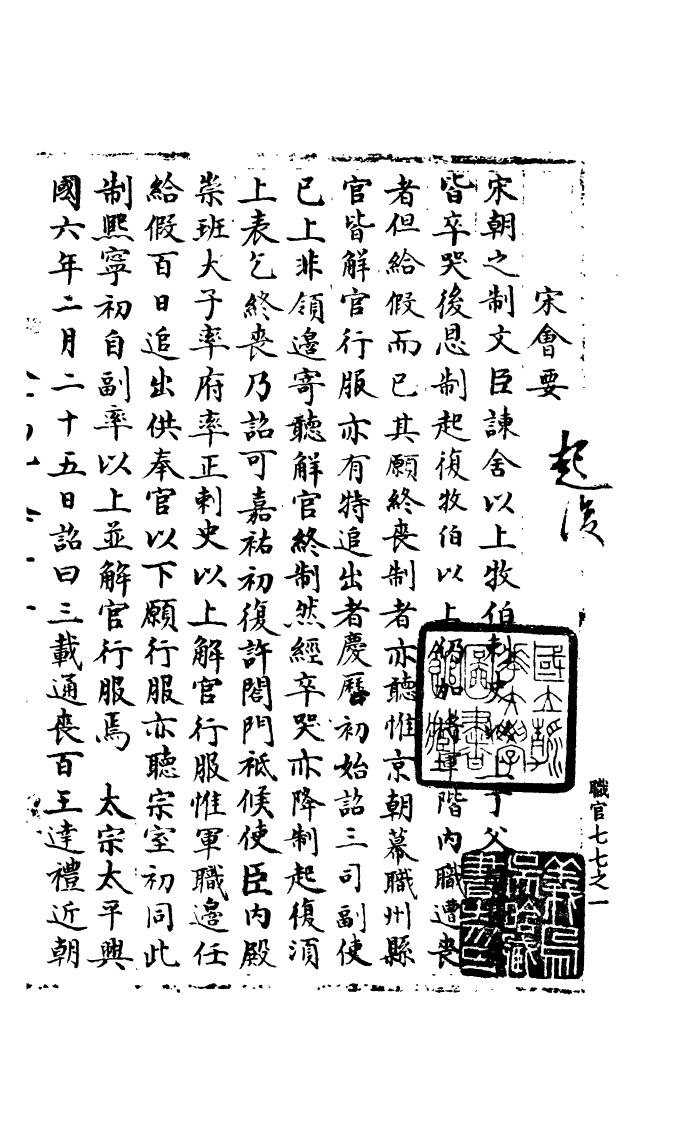 職官七七之一
起復
宋會要
宋朝之制文臣諫舍以上牧伯刺史以上丁父
皆卒哭後恩制起復牧伯以上仍加將軍階內職遭喪
者但給假而已其願終喪制者亦聽惟京朝幕職州縣
官皆解官行服亦有特追出者慶曆初始詔三司副使
已上非領邊寄聽解官終制然經卒哭亦降制起復須
上表乞終喪乃詔可嘉祐初復許閤門祗候使臣內殿
崇班大子率府率正刺史以上解官行服惟軍職邊任
給假百日追出供奉官以下願行服亦聽宗室初同此
制熙寧初自副率以上並解官行服焉 太宗太平興
國六年二月二十五日詔曰三載通喪百王達禮近朝